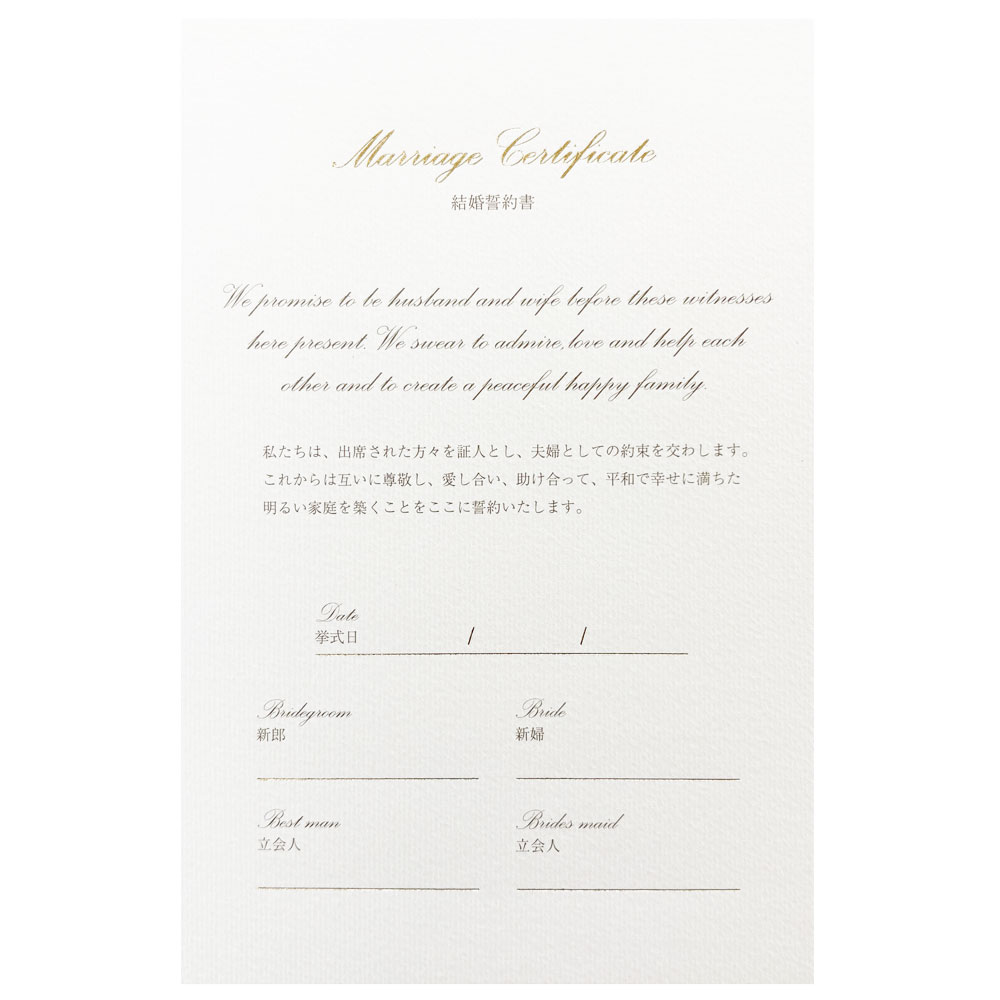 Marriage Certificate
結婚誓約書
We promise to be husband and wife before these witnesses
here present. We swear to admire, love and help each
other and to create a peaceful happy family.
私たちは、出席された方々を証人とし、夫婦としての約束を交わします。
これからは互いに尊敬し、愛し合い、助け合って、平和で幸せに満ちた
明るい家庭を築くことをここに誓約いたします。
Date
挙式日 / /
Bridegroom
新郎
Bride
新婦
Best man
立会人
Brides maid
立会人